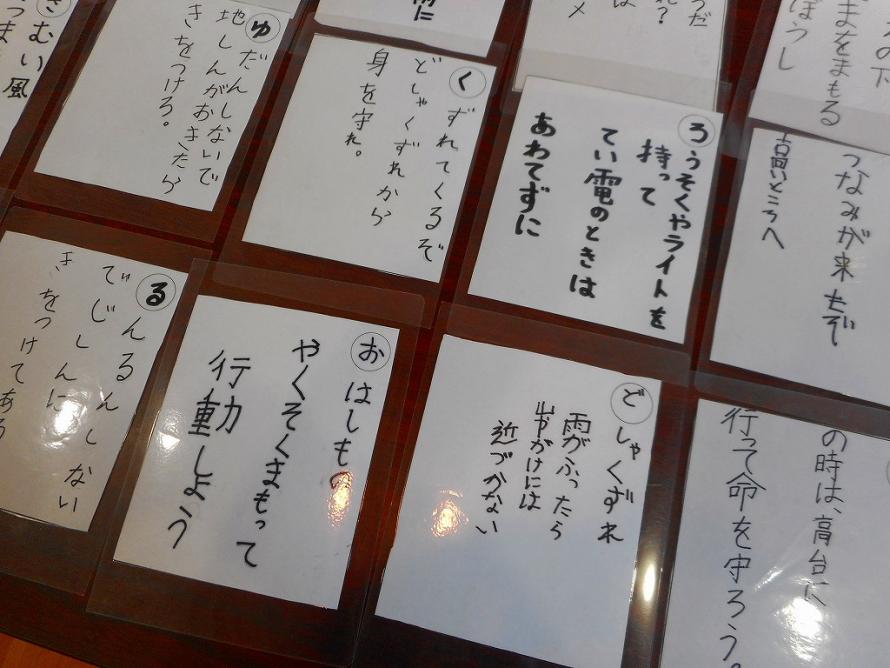 さむい風
ゆだんしないで
地しんがおきたら
きをつけろ。
くずれてくるぞ
どしゃくずれから
身を守れ。
ろうそくやライトを
持って
てい電のときは
あわてずに
まをまもる
ぼうし
つなみが来たぞ
高いところへ
るんるんしない
でじしんに
きをつけてある
おはしもの
やくそくまもって
行動しよう
どしゃくずれ
雨がふったら
山やがけには
近づかない
の時は、高台に
行って命を守ろう。